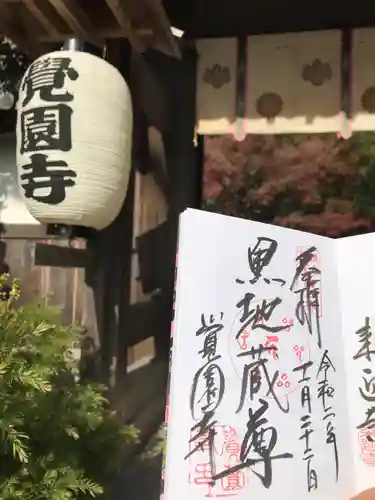 覺園寺
奉拝
令和二年
十一月二十三日
黑地蔵尊
覺園寺
来迎寺